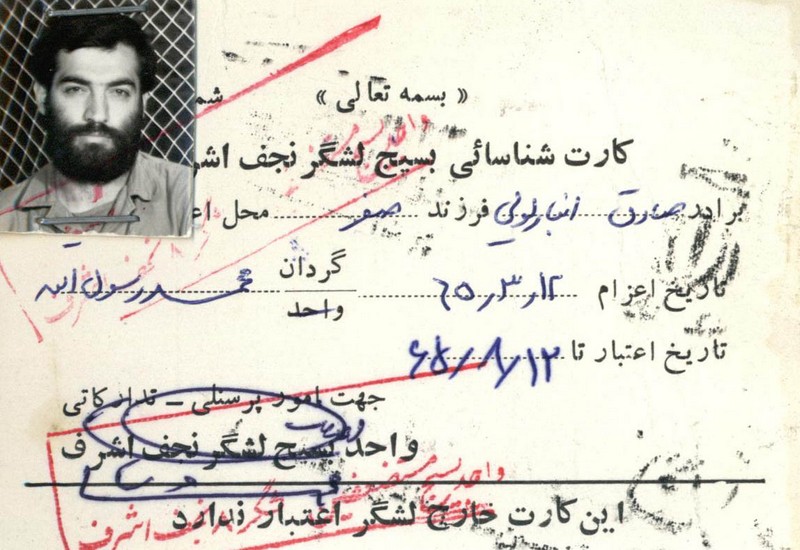 « بسمه تعالی »
شم
کارت شناسائی بسیج لشگر نجف اش
برادر صادق انبارلوئی فرزند صفر محل اع
تاریخ اعزام ۶۵٫۳٫۱۲ گردان محمد رسول الله
واحد
تاریخ اعتبار تا
جهت امور پرسنلی – تدارکاتی
واحد بسیج لشگر نجف اشرف
واحد بسیج
این کارت خارج لشگر اعتبار ندارد